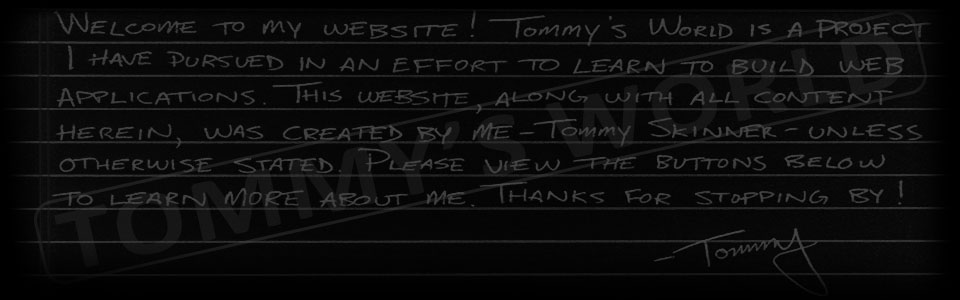 WELCOME TO MY WEBSITE! TOMMY'S WORLD IS A PROJECT
I HAVE PURSUED IN AN EFFORT TO LEARN TO BUILD WEB
APPLICATIONS. THIS WEBSITE, ALONG WITH ALL CONTENT
HEREIN, WAS CREATED BY ME - TOMMY SKINNER - UNLESS
OTHERWISE STATED. PLEASE VIEW THE BUTTONS BELOW
TO LEARN MORE ABOUT ME. THANKS FOR STOPPING BY!
- Tommy
TOMMY'S WORLD